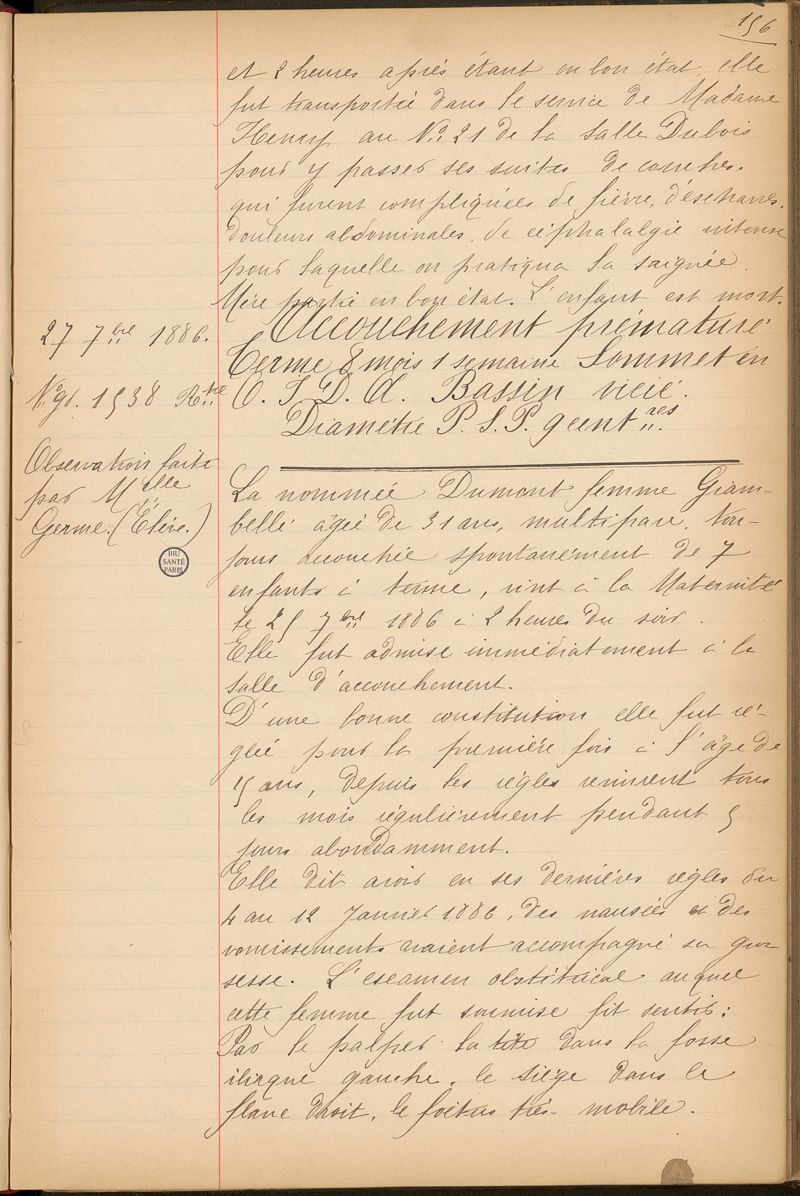 156
et 2 heures après étant en bon état, elle
fut transportée dans le service de Madame
Henry au No. 21 de la salle Dubois
pour y passer ses suites de couches.
qui furent compliquées de fièvre, d'escharres,
douleurs abdominales, de céphalalgie intense
pour laquelle on pratiqua la saignée.
Mère partie en bon état. L'enfant est mort.
27 7bre 1886.
No. gl. 1538 Rtre
Observation faite
par Melle
Germe. (Élève.)
BIU
SANTÉ
PARIS
Accouchement prématuré
Terme 8 mois 1 semaine Sommet en
O. I. D. A. Bassin vicié.
Diamètre P. S. P. 9 centres.
La nommée Dumont femme Giam-
belle âgée de 31 ans, multipare, tou-
jours accouchée spontanément de 7
enfants à terme, vint à la Maternité
le 25 7bre 1886 à 2 heures du soir.
Elle fut admise immédiatement à la
salle d'accouchement.
D'une bonne constitution elle fut ré-
glée pour la première fois à l'âge de
15 ans, depuis les règles revinrent tous
les mois régulièrement pendant 5
jours abondamment.
Elle dit avoir eu ses dernières règles du
4 au 12 Janvier 1886, des nausées et des
vomissements avaient accompagné sa gros-
sesse. L'examen obstétrical auquel
cette femme fut soumise fit sentir:
Par le palper la tête dans la fosse
iliaque gauche, le siège dans le
flanc droit, le foetus très mobile.